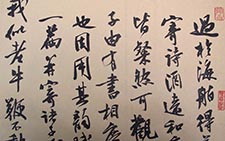 過於海舶得
寄詩酒遠和
皆粲然可觀
子由有書相
也因用其韻
一篇并寄諸子
我似老牛鞭不